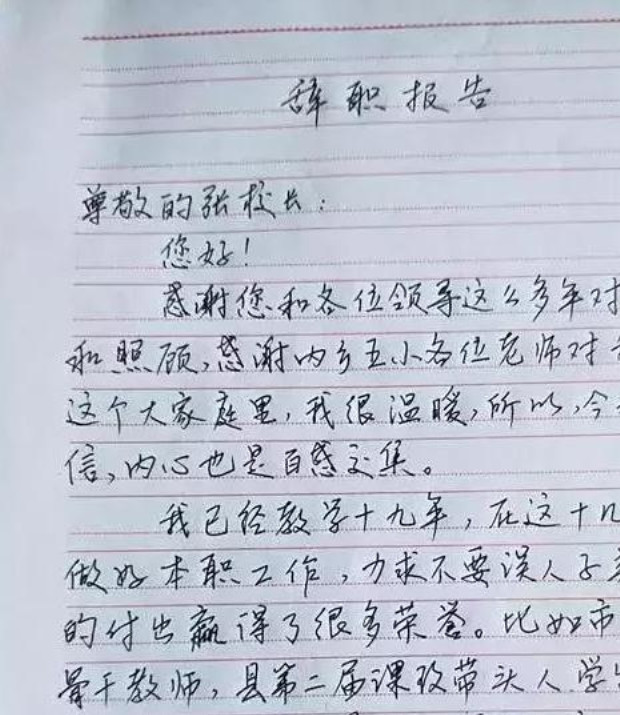 辞职报告
尊敬的张校长：
您好！
感谢您和各位领导这么多年对
和照顾，感谢内乡五小各位老师对
这个大家庭里，我很温暖，所以，今
信，内心也是百感交集。
我已经教学十九年，在这十几
做好本职工作，力求不要误人子
的付出赢得了很多荣誉。比如市
骨干教师，县第二届课改带头人学